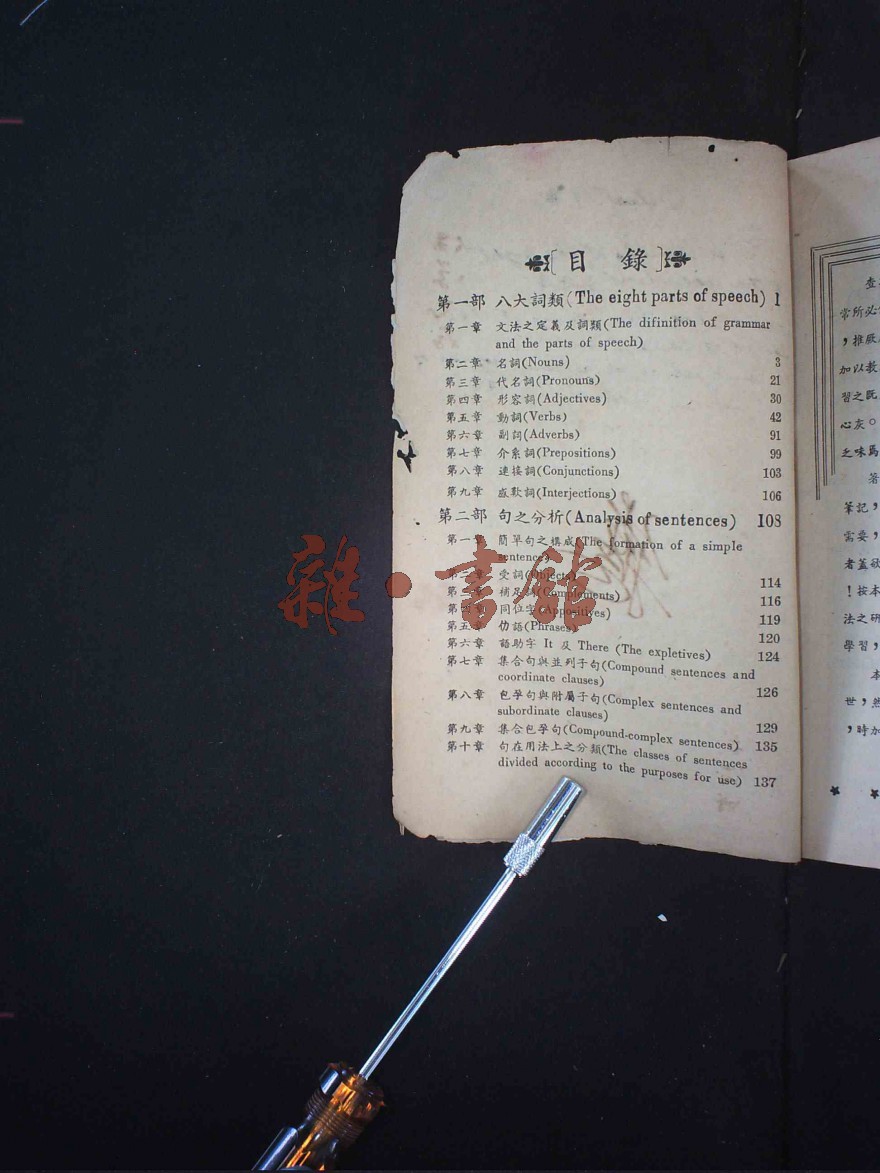 目錄
第一部 八大詞類(The eight parts of speech) 1
第一章 文法之定義及詞類(The difinition of grammar
and the parts of speech)
第二章 名詞(Nouns) 3
第三章 代名詞(Pronouns) 21
第四章 形容詞(Adjectives) 30
第五章 動詞(Verbs) 42
第六章 副詞(Adverbs) 91
第七章 介系詞(Prepositions) 99
第八章 連接詞(Conjunctions) 103
第九章 感歎詞(Interjections) 106
第二部 句之分析(Analysis of sentences) 108
第一章 簡單句之構成(The formation of a simple
sentence)
第二章 受詞(Objects) 114
第三章 補足詞(Complements) 116
第四章 同位字(Appositives) 119
第五章 仂語(Phrases) 120
第六章 語助字 It 及 There (The expletives) 124
第七章 集合句與並列子句(Compound sentences and
coordinate clauses) 126
第八章 包孕句與附屬子句(Complex sentences and
subordinate clauses) 129
第九章 集合包孕句(Compound-complex sentences) 135
第十章 句在用法上之分類(The classes of sentences
divided according to the purposes for use) 137
雜·書館
查
常所必
，推厥
加以教
習之既
心灰。
之味焉
著
筆記，
需要，
者蓋欲
！按本
法之研
學習，
本
世，然
，時加